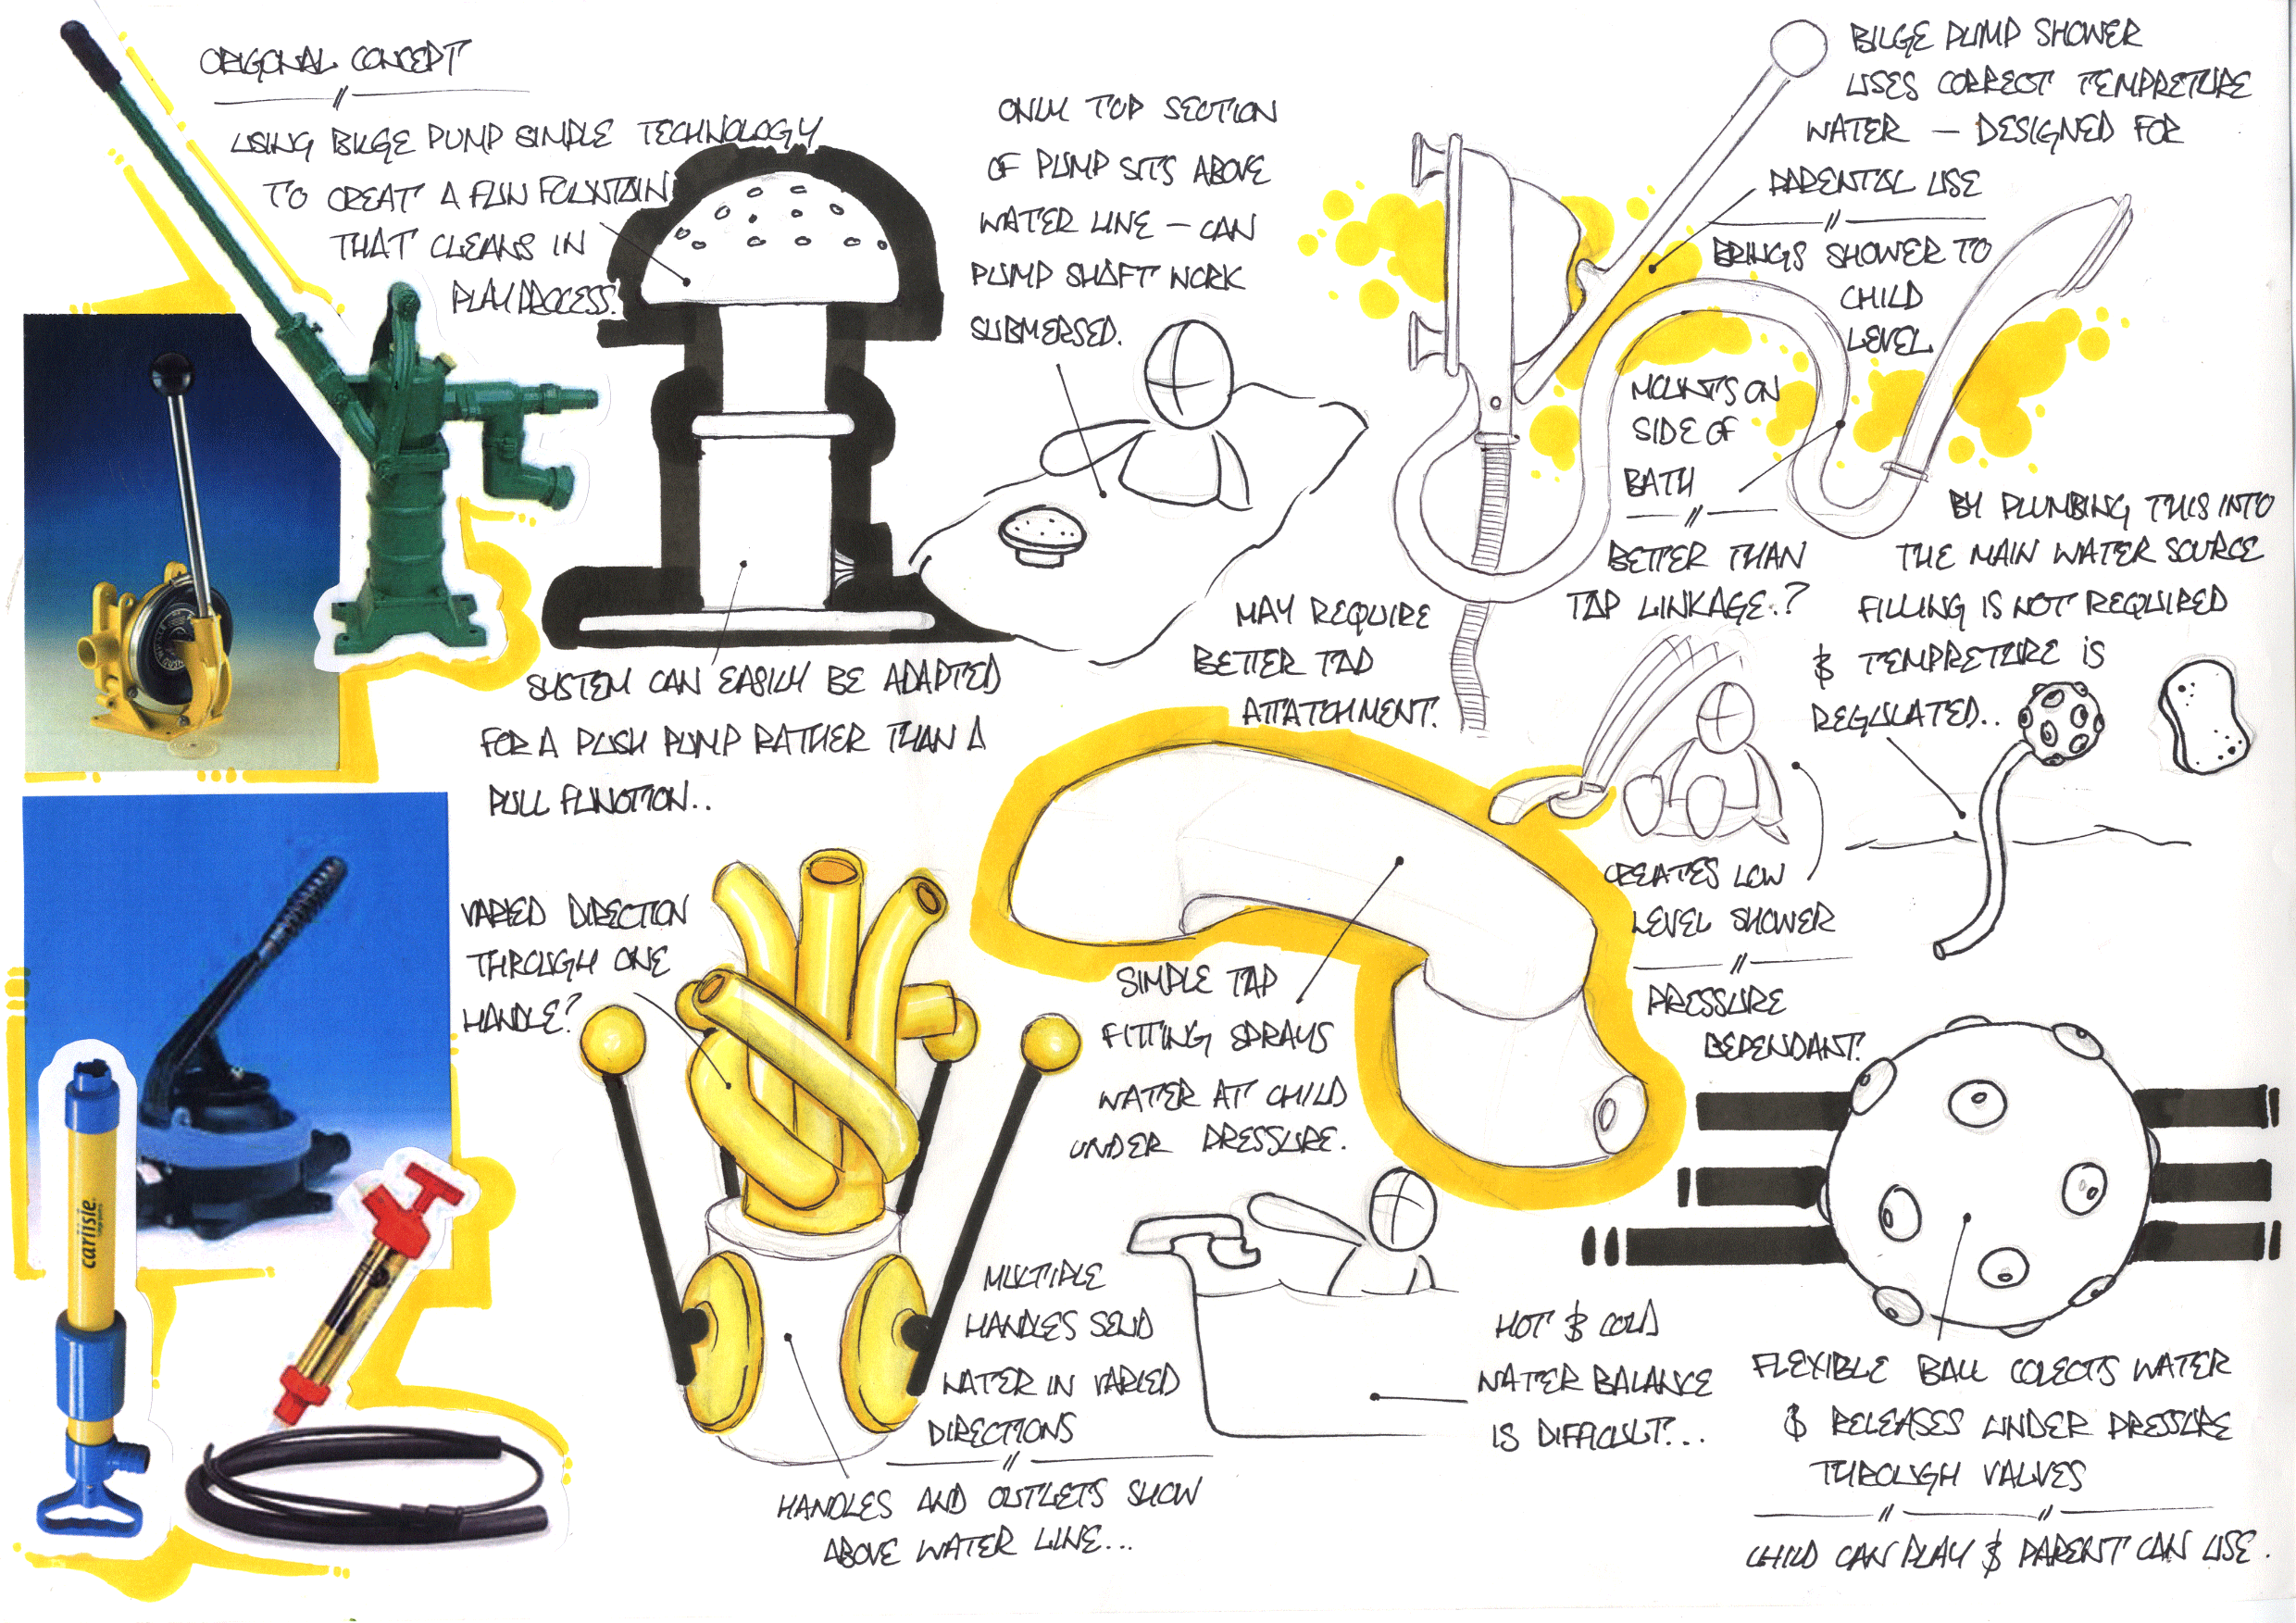 ORIGONAL CONCEPT
USING BILGE PUMP SIMPLE TECHNOLOGY
TO CREAT A FUN FOUNTAIN
THAT CLEANS IN
PLAY PROCESS.
ONLY TOP SECTION
OF PUMP SITS ABOVE
WATER LINE – CAN
PUMP SHAFT WORK
SUBMERSED.
BILGE PUMP SHOWER
USES CORRECT TEMPRETURE
WATER – DESIGNED FOR
PARENTAL USE
BRINGS SHOWER TO
CHILD
LEVEL
MOUNTS ON
SIDE OF
BATH
BETTER THAN
TAP LINKAGE..?
BY PLUMBING THIS INTO
THE MAIN WATER SOURCE
FILLING IS NOT REQUIRED
& TEMPRETURE IS
REGULATED..
MAY REQUIRE
BETTER TAP
ATTATCHMENT.
SYSTEM CAN EASILY BE ADAPTED
FOR A PUSH PUMP RATHER THAN A
PULL FUNCTION..
VARIED DIRECTION
THROUGH ONE
HANDLE?
SIMPLE TAP
FITTING SPRAYS
WATER AT CHILD
UNDER PRESSURE.
CREATES LOW
LEVEL SHOWER
PRESSURE
DEPENDANT.
MULTIPLE
HANDLES SEND
WATER IN VARIED
DIRECTIONS
HANDLES AND OUTLETS SHOW
ABOVE WATER LINE...
HOT & COLD
WATER BALANCE
IS DIFFICULT...
FLEXIBLE BALL COLECTS WATER
& RELEASES UNDER PRESSURE
THROUGH VALVES
CHILD CAN PLAY & PARENT CAN USE.
carlisle